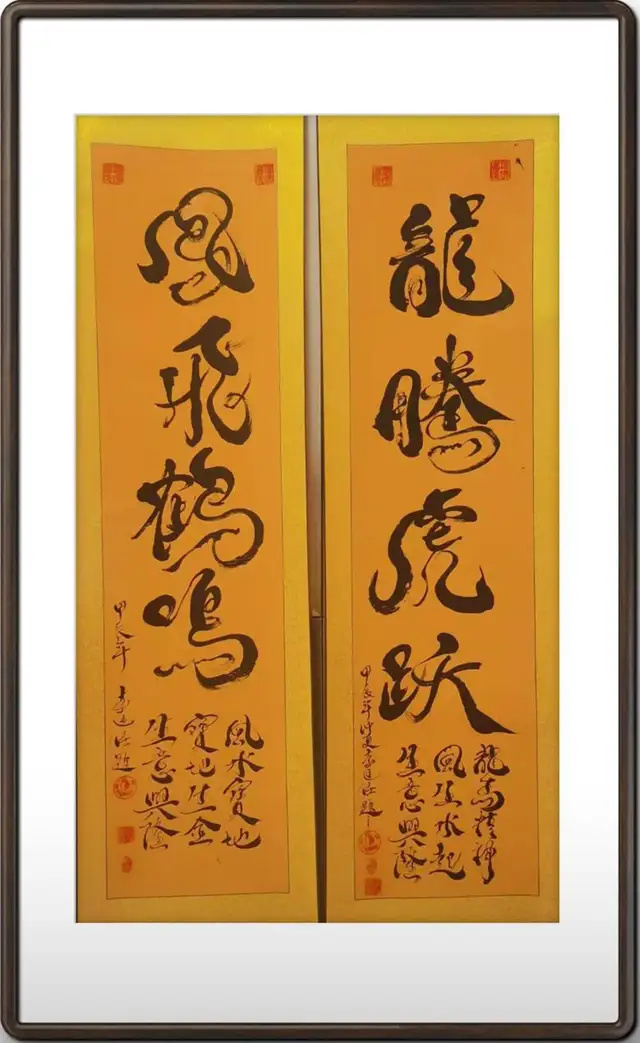 龍騰虎跃
龍馬精神
風生水起
生意興隆
甲辰年
鳳飛鶴鳴
風水寶地
寶地生金
生意興隆
甲辰年